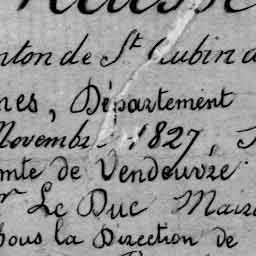 nton de St Aubin d
nes, Département
Novembre 1827,
mte de Vendeuvre
r Le Duc Maire
sous la Direction de